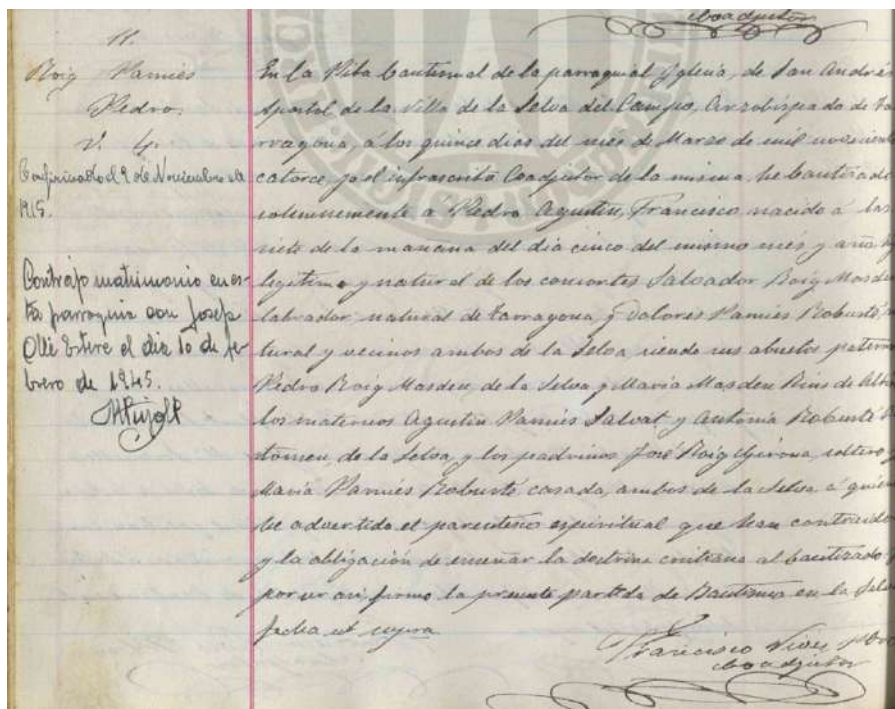 Coadjutor
11.
Roig Pamies
Pedro.
V. 4.
Confirmado el 9 de Noviembre de
1915.
Contrajo matrimonio en es-
ta parroquia con Josefa
Ollé Esteve el día 10 de fe-
brero de 1945.
En la Pila bautismal de la parroquial Iglesia, de San Andrés
Apostol de la villa de la Selva del Campo, Arzobispado de Ta
rragona, á los quince dias del mes de Marzo de mil novecientos
catorce, yo el infrascrito Coadjutor de la misma, he bautizado
solemnemente a Pedro, Agustin, Francisco nacido á las
siete de la mañana del dia cinco del mismo mes y año,
legitimo y natural de los consortes Salvador Roig Masdeu
labrador, natural de Tarragona, y Dolores Pamies Robusté,
tural y vecinos ambos de la Selva, siendo sus abuelos paternos
Pedro Roig Masdeu, de la Selva y María Masdeu Rius de
los maternos Agustin Pamies Salvat y Antonia Robusté
tomeu, de la Selva, y los padrinos José Roig Girona, soltero y
María Pamies Robusté casada, ambos de la Selva á quienes
he advertido el parentesco espiritual que han contraido
y la obligación de enseñar la doctrina cristiana al bautizado
por ser asi firmo la presente partida de Bautismo en la Selva
fecha ut supra
Francisco Vives Pbro
Coadjutor